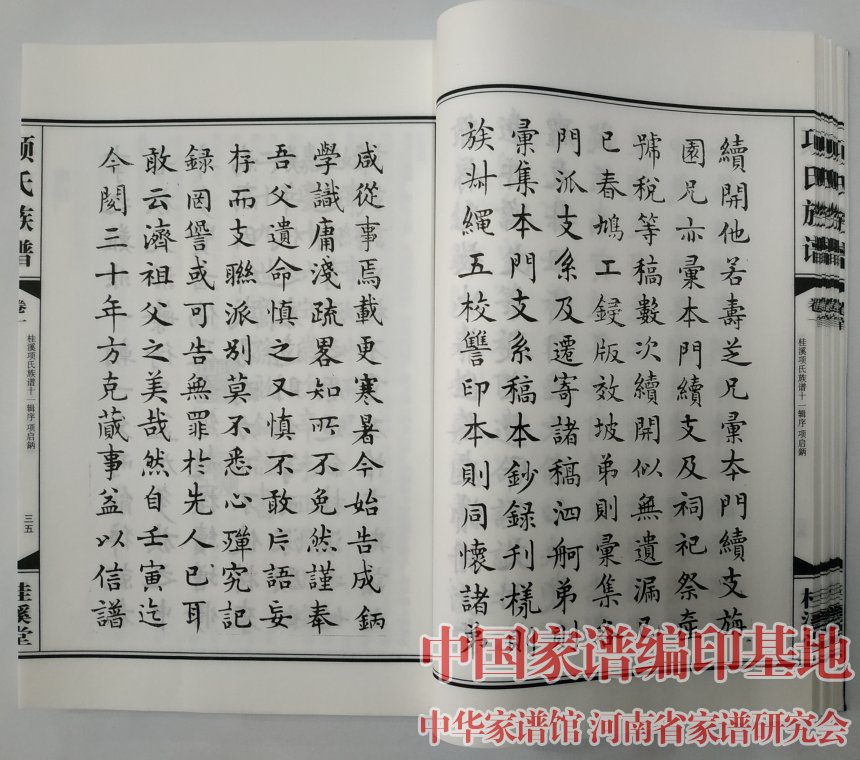 續開他若壽芝兄彙本門續支
園兄亦彙本門續支及祠祀祭
號稅等稿數次續開似無遺漏
巳春鳩工鋟版效坡弟則彙集
門派支系及遷寄諸稿泗舸弟
彙集本門支系稿本鈔錄刊樣則
族步繩五校讐印本則同懷諸弟
咸從事焉載更寒暑今始告成鈵
學識庸淺疏畧知所不免然謹奉
吾父遺命慎之又慎不敢片語妄
存而支聯派別莫不悉心殫究記
錄罔愆或可告無罪於先人已耳
敢云濟祖父之美哉然自壬寅迄
今閱三十年方克蕆事益以信譜
项氏族谱
卷一
桂溪项氏族谱十一辑序 项启鈵
三五
桂溪堂
项氏族谱
桂溪项氏族谱十一辑序 项启鈵
中国家谱编印基地
中华家谱馆 河南省家谱研究会